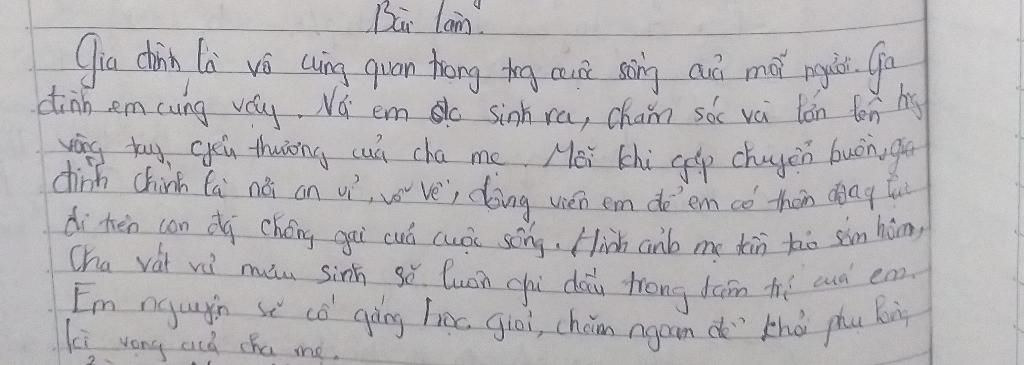 Bài làm
Gia đình là vô cùng quan trọng trg cuộc sống của mỗi người. Ga
đình em cũng vậy. Nơi em đc sinh ra, chăm sóc và lớn lên
vòng tay yêu thương của cha mẹ. Mỗi khi gặp chuyện buồn, gia
đình chính là nơi an ủi, vỗ về, động viên em để em có thêm động lực
đi trên con đg chông gai của cuộc sống. Hình ảnh mẹ tần tảo sớm hôm,
Cha vất vả mưu sinh sẽ luôn ghi dấu trong tâm trí của em.
Em nguyện sẽ cố gắng học giỏi, chăm ngoan để khỏi phụ lòng
kì vọng của cha mẹ.